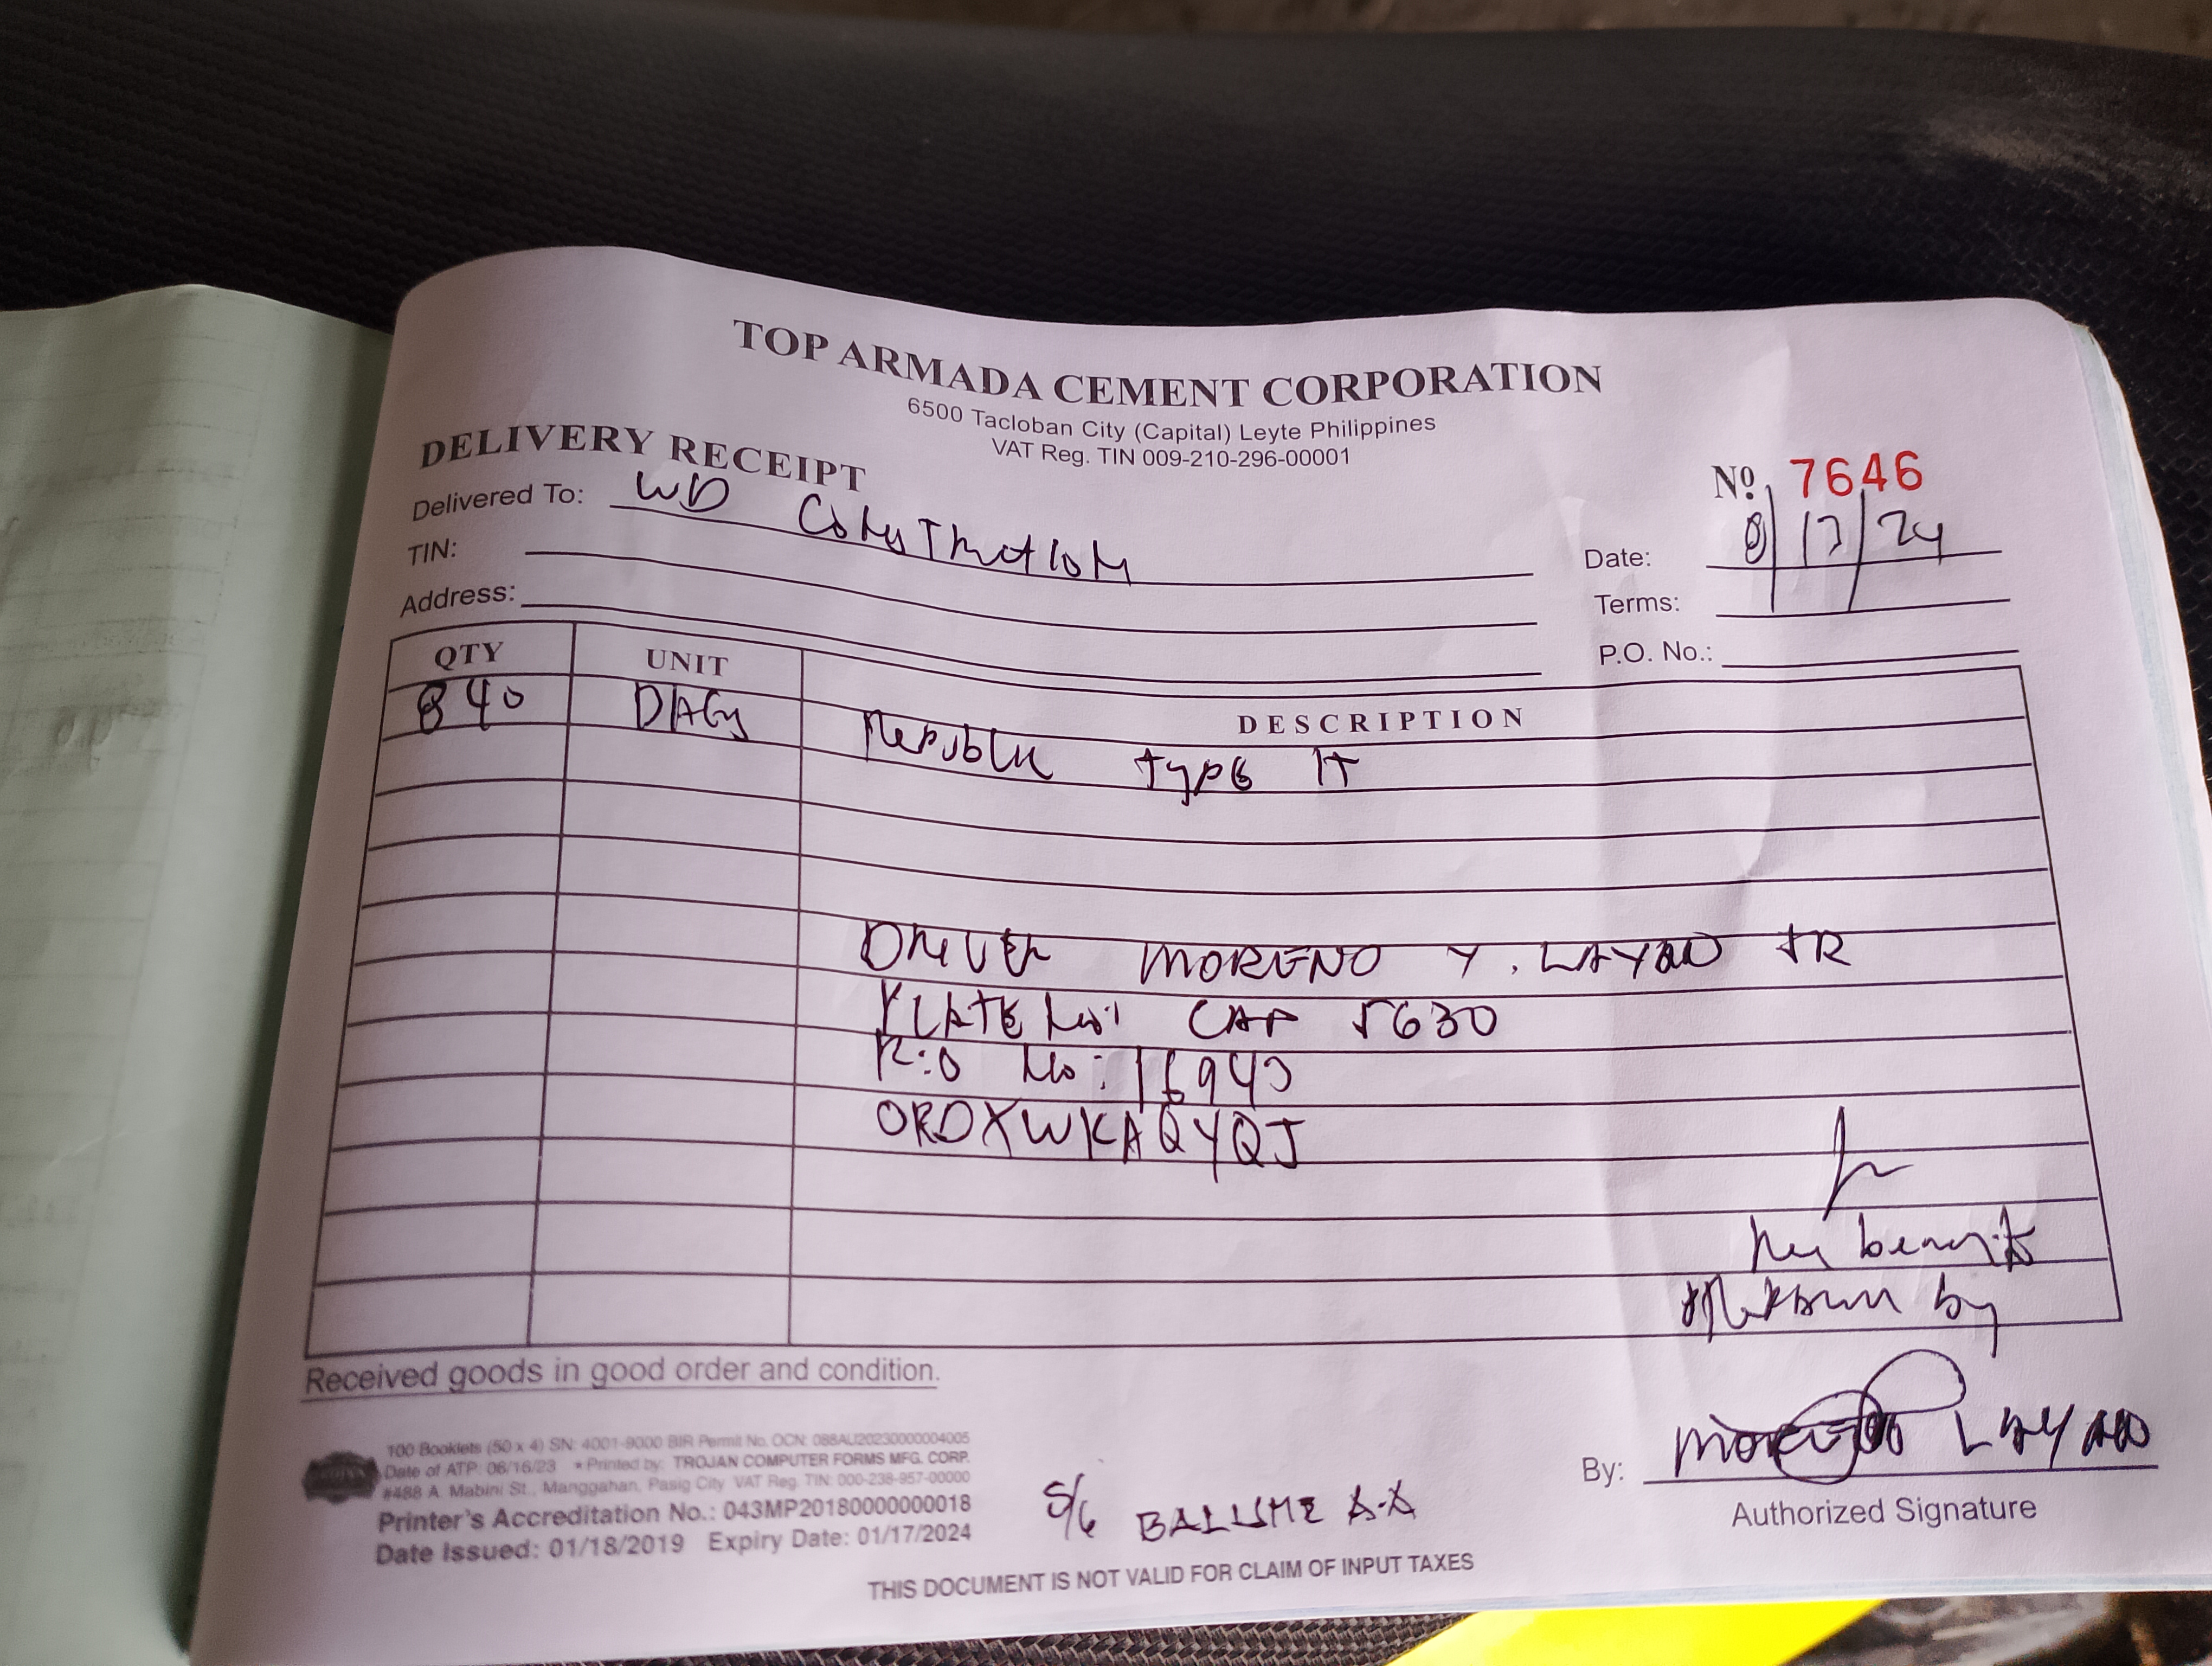 TOP ARMADA CEMENT CORPORATION
6500 Tacloban City (Capital) Leyte Philippines
VAT Reg. TIN 009-210-296-00001
DELIVERY RECEIPT
Nº 7646
Delivered To: WD Construction
Date: 8/17/24
TIN:
Terms:
Address:
P.O. No.:
QTY UNIT DESCRIPTION
840 BAGS Republic type 1T
DRIVER MORENO Y. LAYAO JR
PLATE No: CAP 5630
R:O No: 16943
ORDXWKAQYQJ
by
Received goods in good order and condition.
100 Booklets (50 x 4) SN: 4001-9000 BIR Permit No. OCN: 088AU20230000004005
Date of ATP: 06/16/23 * Printed by: TROJAN COMPUTER FORMS MFG. CORP.
#488 A. Mabini St., Manggahan, Pasig City VAT Reg. TIN: 000-238-957-00000
Printer's Accreditation No.: 043MP20180000000018
Date Issued: 01/18/2019 Expiry Date: 01/17/2024
S/G
By: MORENO LAYAO
Authorized Signature
THIS DOCUMENT IS NOT VALID FOR CLAIM OF INPUT TAXES